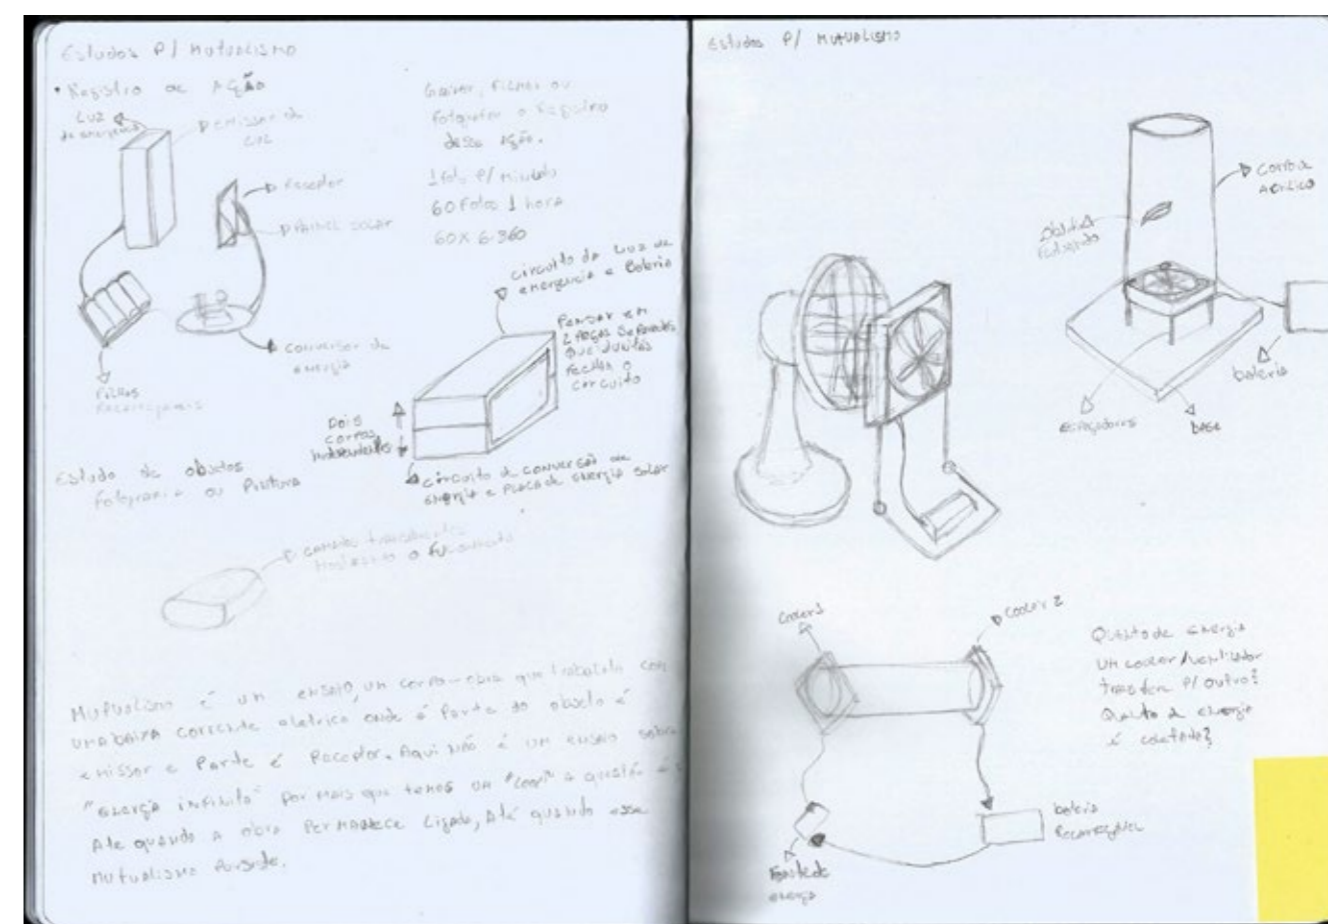 Estudos P/ Mutualismo
• Registro de Ação
Luz
de emergência
emissor de
luz
Receptor
Painel solar
conversor de
energia
Pilhas
Recarregáveis
Filmar ou
Fotografar o Registro
dessa Ação.
1 foto P/ minuto
60 Fotos 1 hora
60 x 6 = 360
circuito da Luz de
emergencia e Bateria
Pensar em
2 Peças Separadas
que juntas
Fecham o
circuito
Dois
corpos
independentes
circuito de conversão de
energia e placa de energia solar
Estudo de objetos
Fotografia ou Pintura
Mutualismo é um ensaio, um corpo-obra que trabalha com
uma baixa corrente eletrica onde é Parte do objeto é
emissor e Parte é Receptor. Aqui não é um ensaio sobre
"energia infinita" Por mais que temos um "loop" a questão é
Ate quando a obra Permanece Ligada, Até quando esse
mutualismo Persiste.
Estudos P/ Mutualismo
Acrilico
objeto
bateria
espaçadores
base
cooler 1
cooler 2
Quanto de energia
um cooler/ventilador
transfere P/ outro?
Quanto de energia
é coletada?
bateria
Recarregável
Fonte de
energia